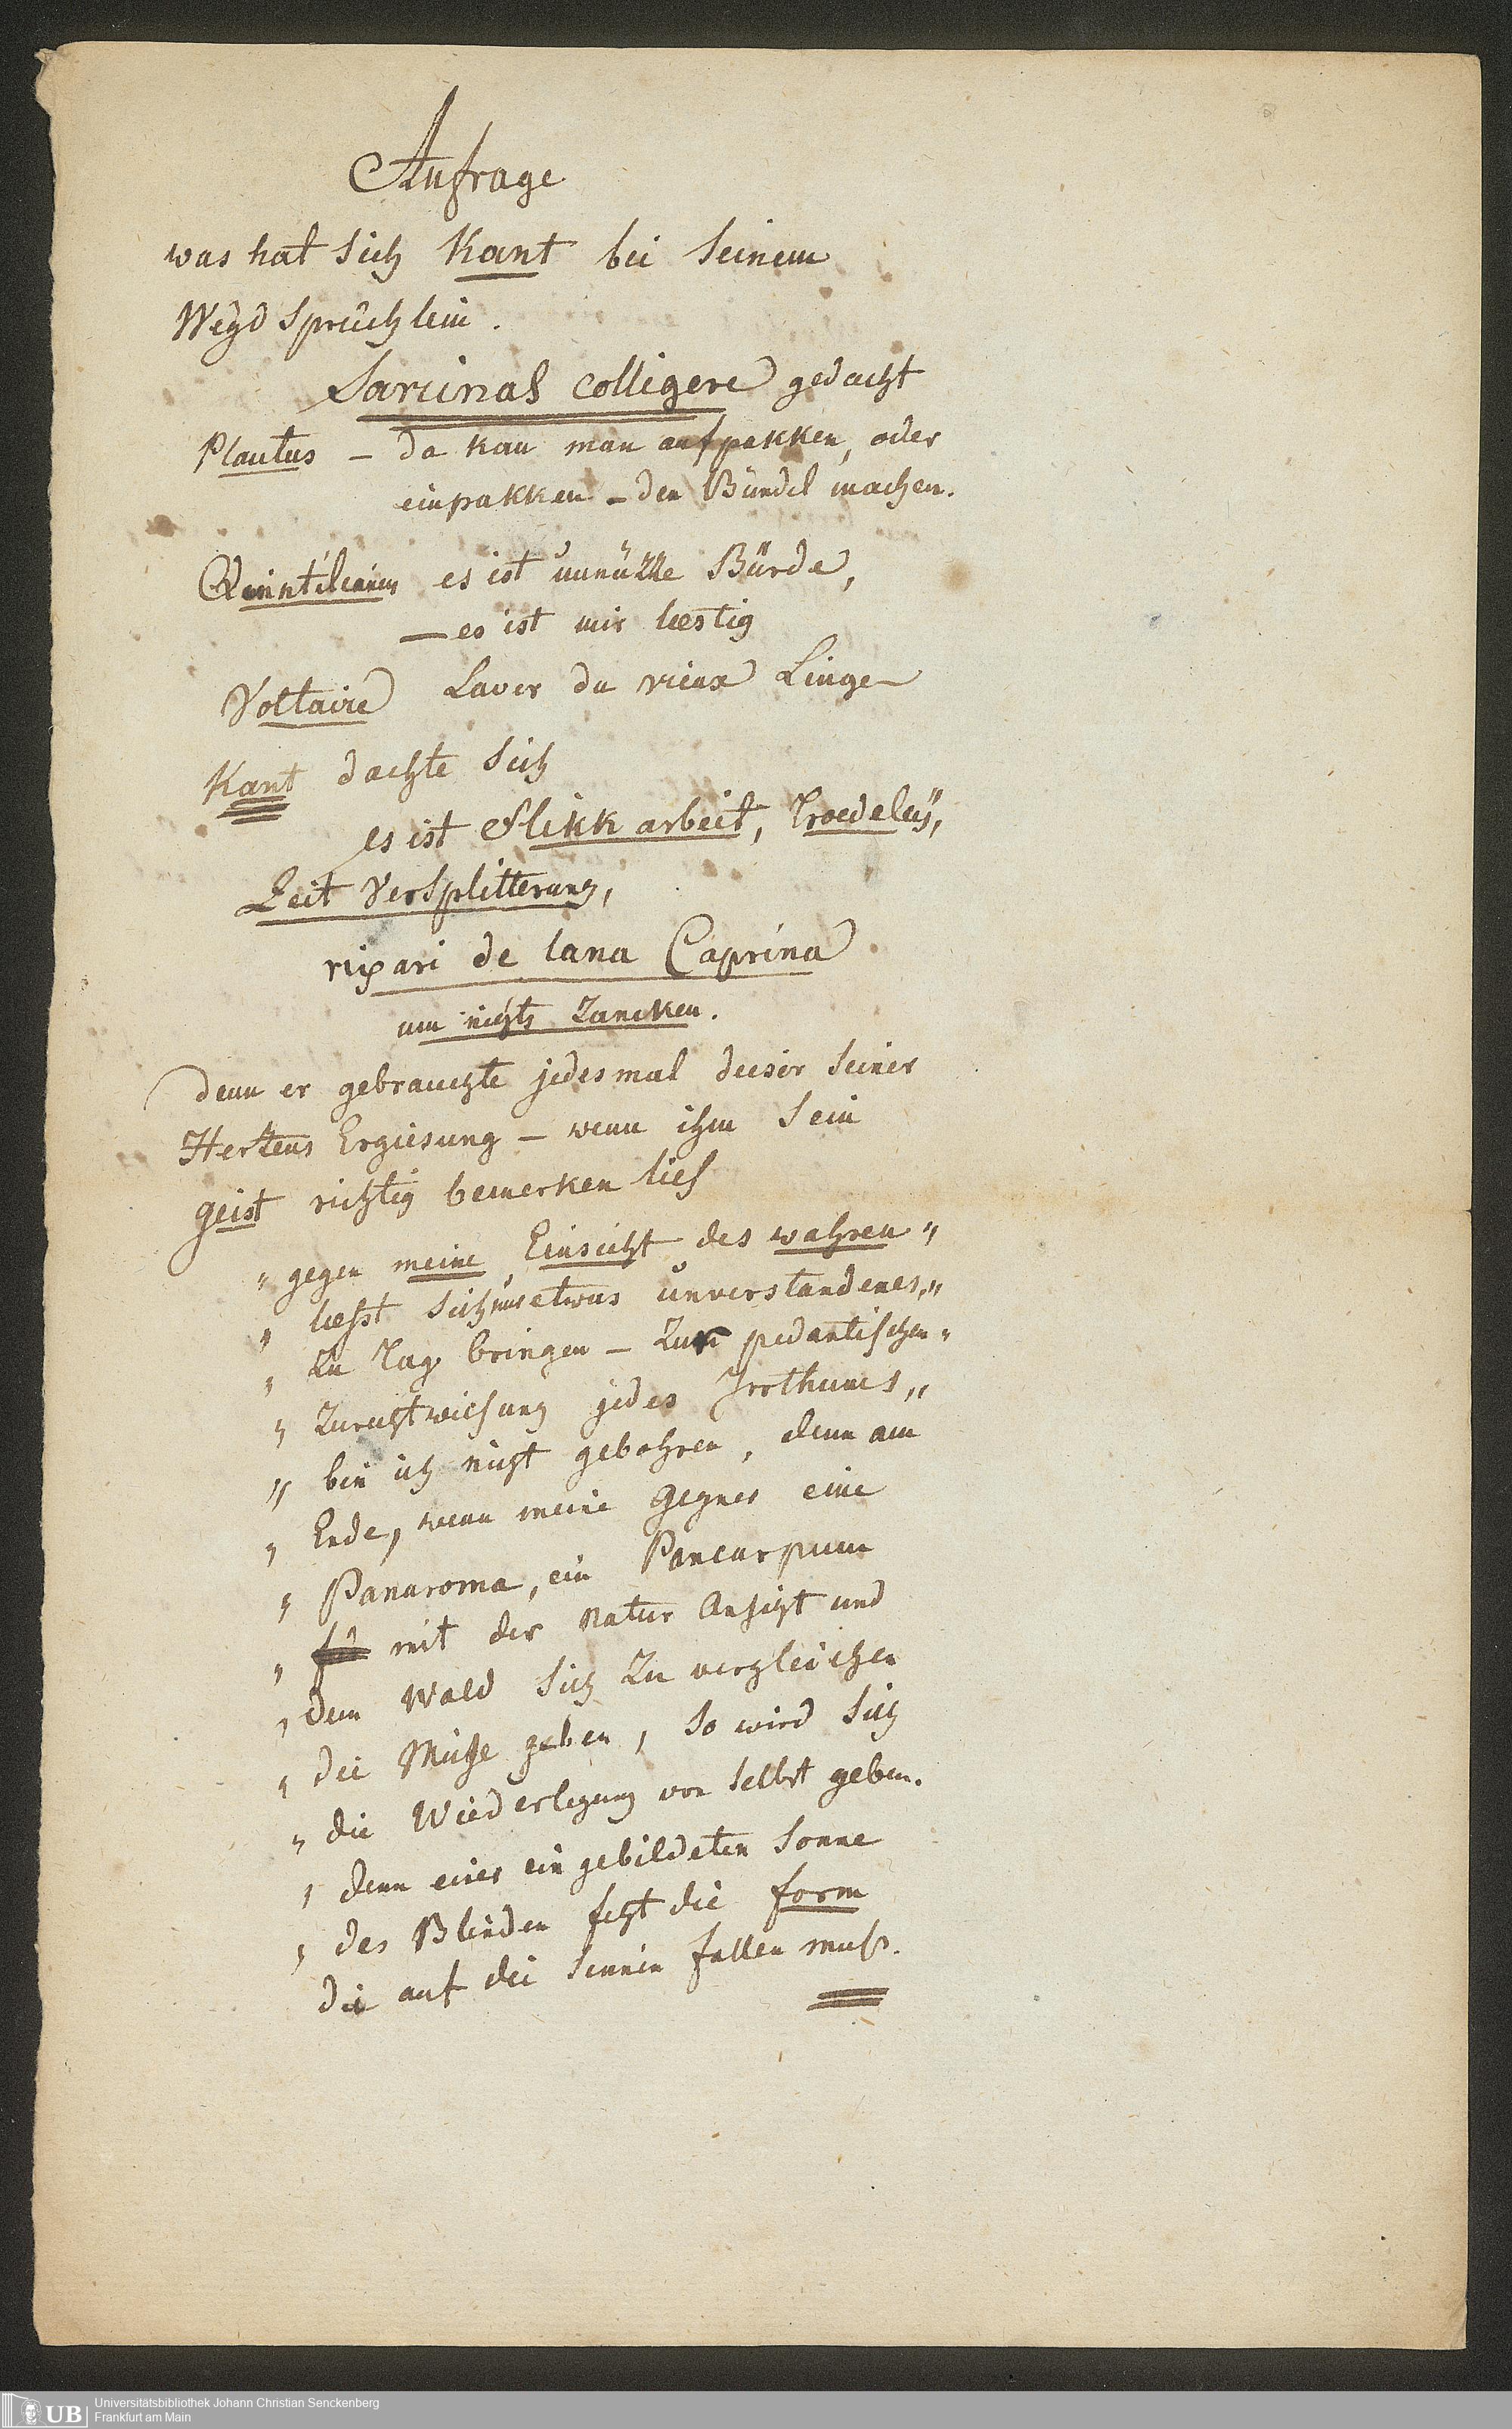 Anfrage
was hat sich Kant bei seinem
Weydsprüchlein.
Sarcinas colligere gedacht
Plautus – da kan man aufpakken, oder
einpakken – den Bündel machen.
Quintilianus es ist unnüzze Bürde,
— es ist mir lestig
Voltaire Laver du vieux Linge
Kant dachte sich
es ist Flikkarbeit, Troedeley,
Zeit Versplitterung,
rixari de lana Caprina
um nichts Zancken.
denn er gebrauchte jedesmal dieser seiner
Hertzens Ergiesung – wenn ihm sein
geist richtig bemerken lies
„ gegen meine Einsicht des wahren „
„ liesst sich nur etwas unverstandenes „
„ zu Tag bringen – zur pedantischen „
„ Zurechtweisung jedes Irrthumes „
„ bin ich nicht gebohren, denn am
„ Ende, wenn meine Gegner eine
„ Panaroma, ein Pancarpum
„ mit der Natur Ansicht und
„ dem Wald sich zu vergleichen
„ die Mühe geben, so wird sich
„ die Wiederlegung von selbst geben.
„ denn einer eingebildeten Sonne
„ des Blinden fehlt die form
die auf die Sinnen fallen muß.
Universitätsbibliothek Johann Christian Senckenberg
Frankfurt am Main
UB